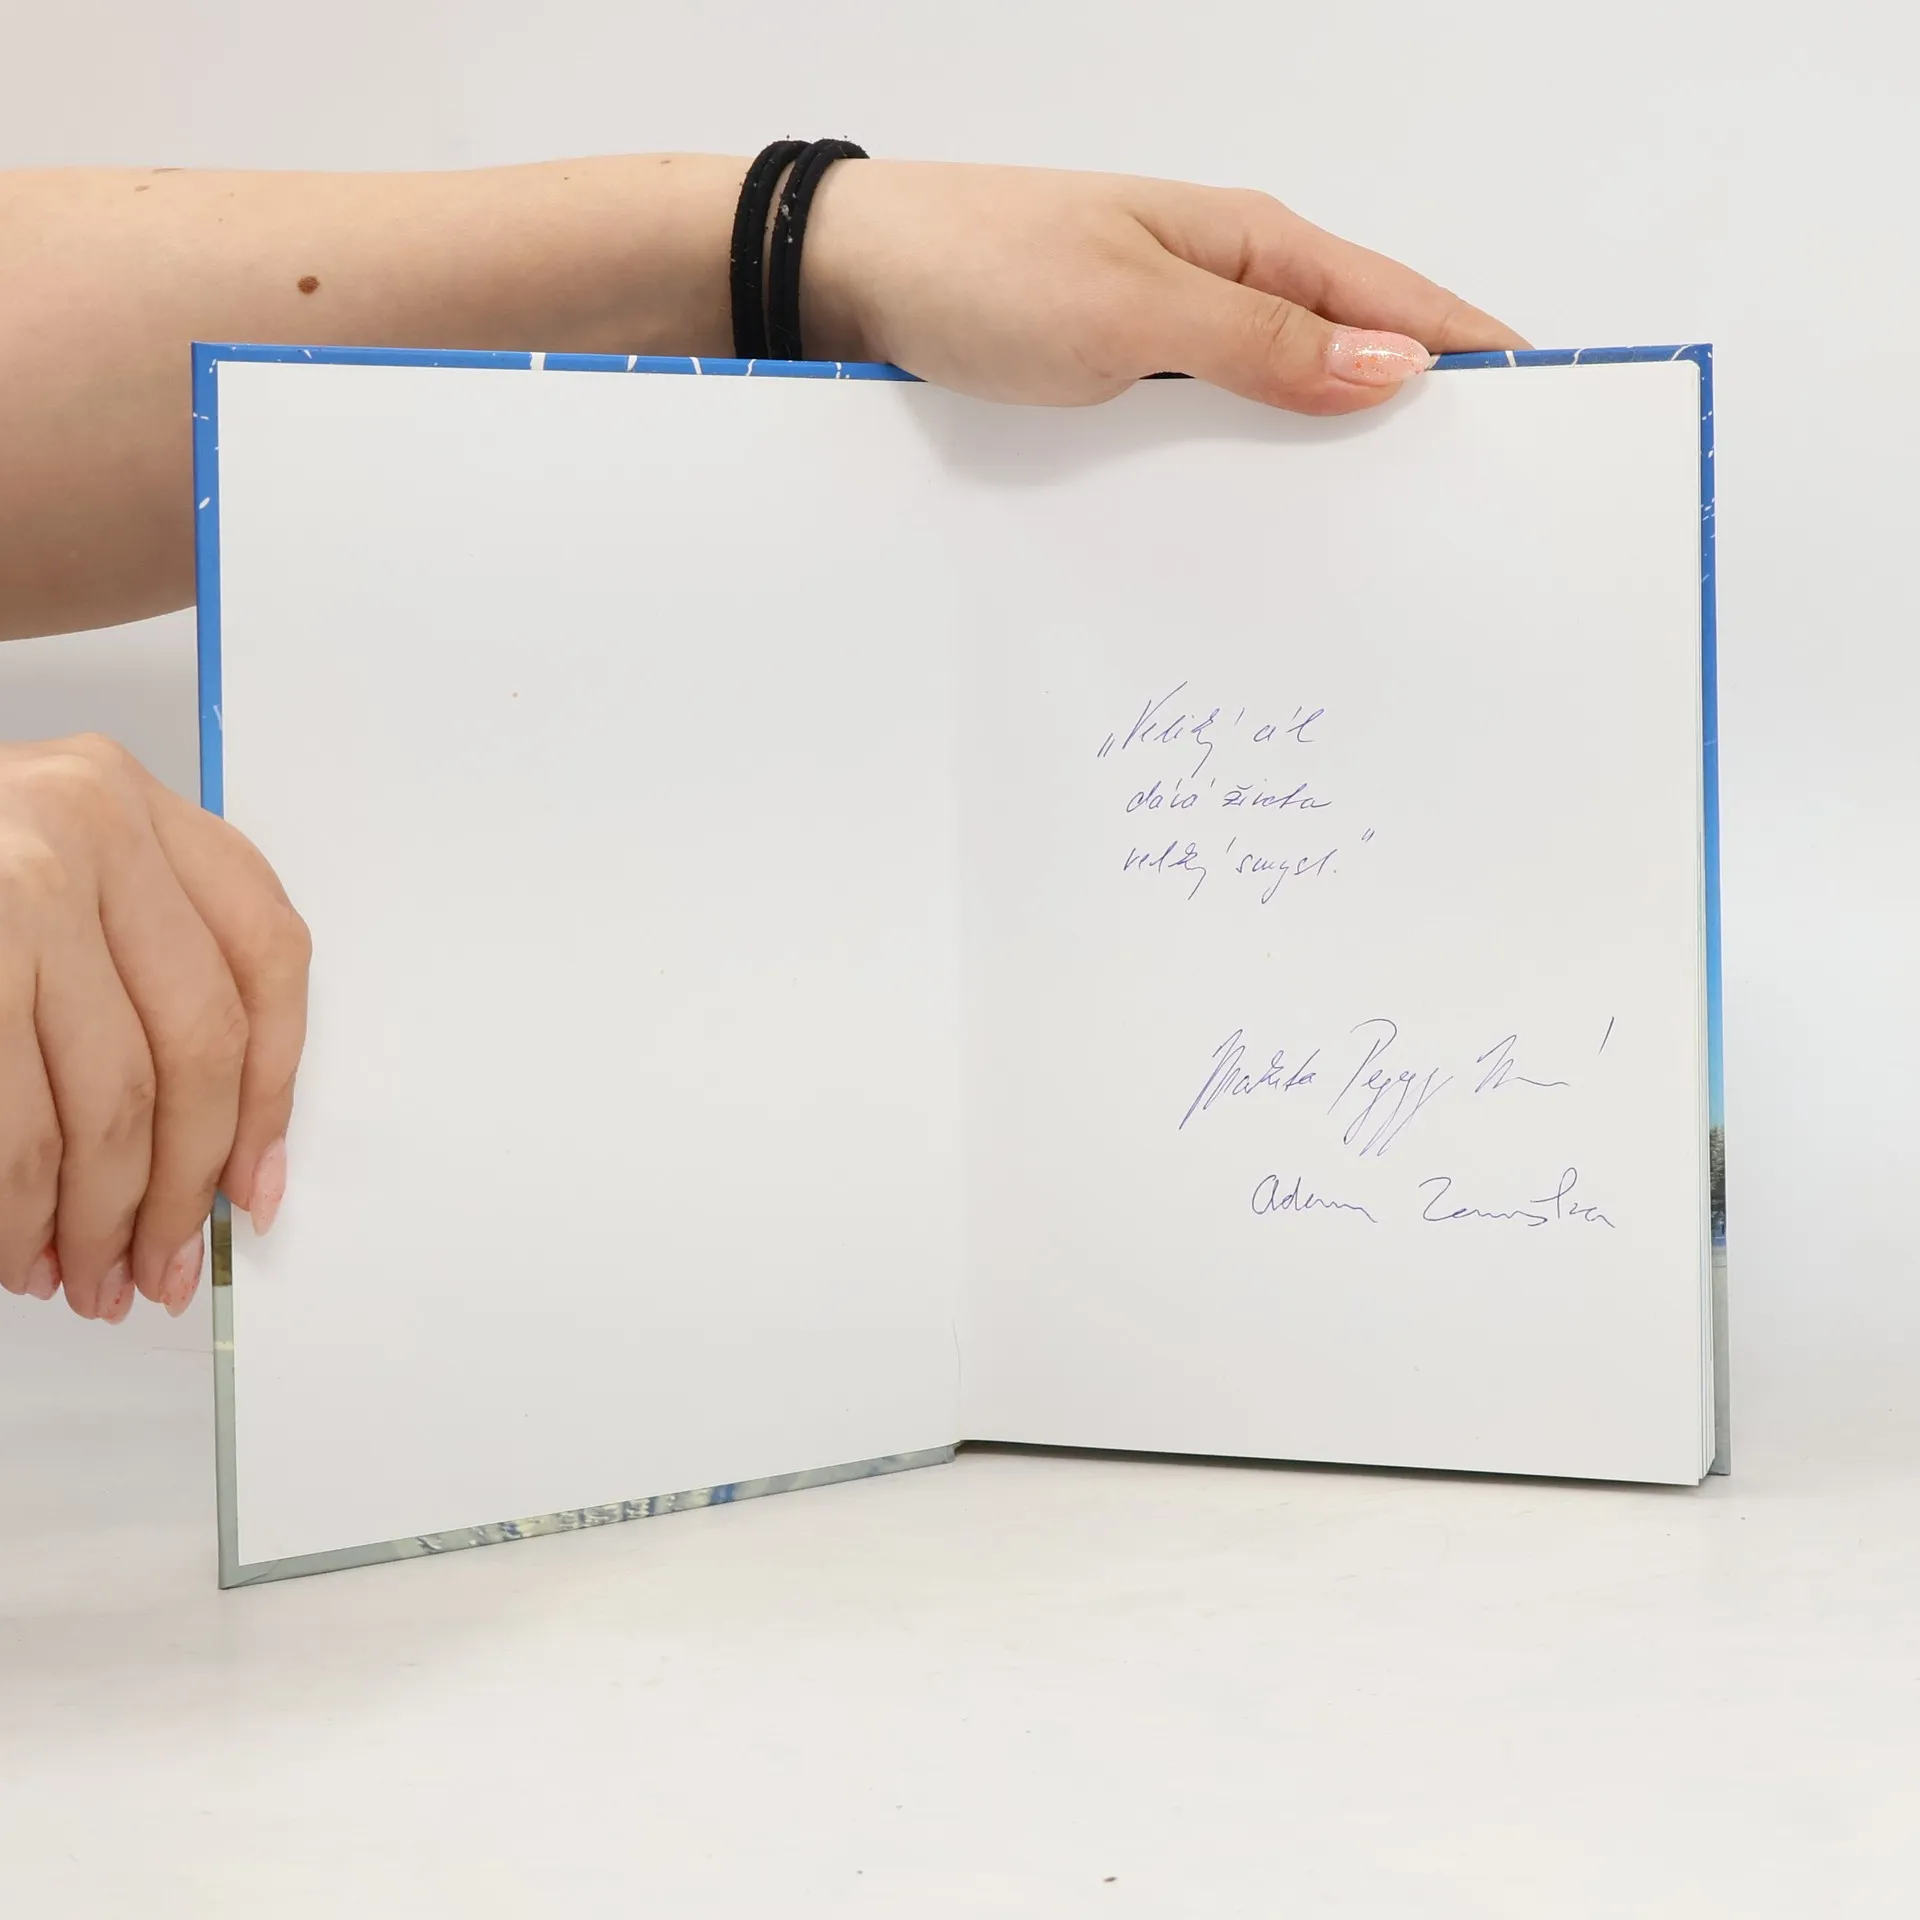 „Veliký cíl
dává životu
velký smysl.“
Markéta Peggy
Adam